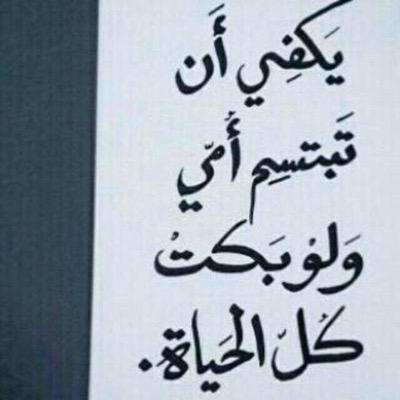 يَكفِي أَن
تَبتسِم أُمّي
وَلوْ بَكتْ
كُلّ الحَياةِ.